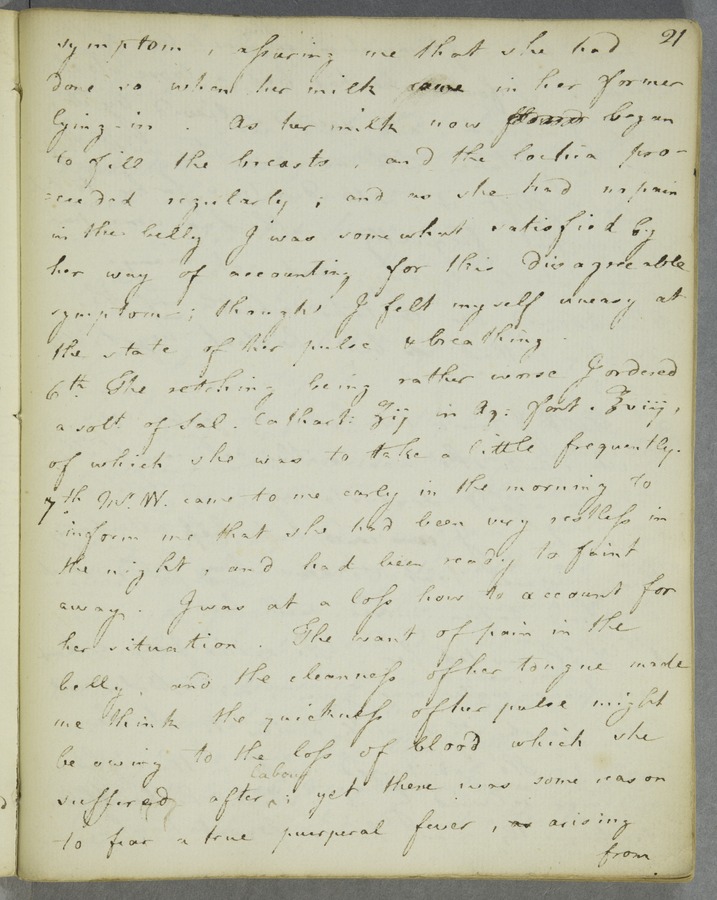 21
symptom, assuring me that she had
done so when her milk came in her former
lying-in. As her milk now began
to fill the breasts, and the lochia pro-
=ceeded regularly; and as she had no pain
in the belly I was somewhat satisfied by
her way of accounting for this disagreeable
symptom; though I felt myself uneasy at
the state of her pulse & breathing.
6th. The retching being rather worse I ordered
a solt. of Sal. Cathart: ℥ij in Aq: font. ℥viij,
of which she was to take a little frequently.
7th Mr. W. came to me early in the morning to
inform me that she had been very restless in
the night, and had been ready to faint
away. I was at a loss how to account for
her situation. The want of pain in the
belly, and the cleanness of her tongue made
me think the quickness of her pulse might
be owing to the loss of blood which she
suffered after labour; yet there was some reason
to fear a true puerperal fever, as arising
from